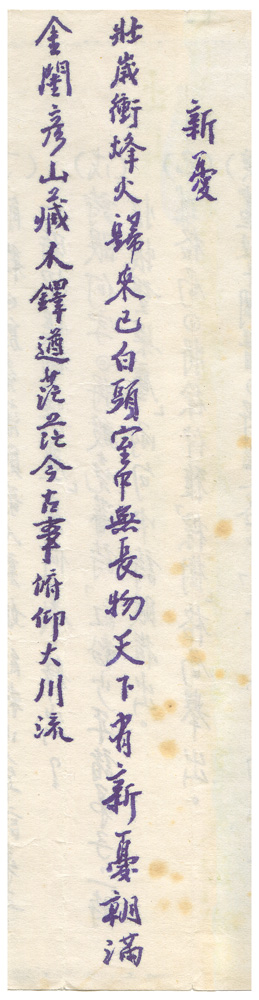 新憂
壯歲衝烽火歸來已白頭室中無長物天下有新憂朝滿
金閨彥山藏木鐸遒茫茫今古事俯仰大川流